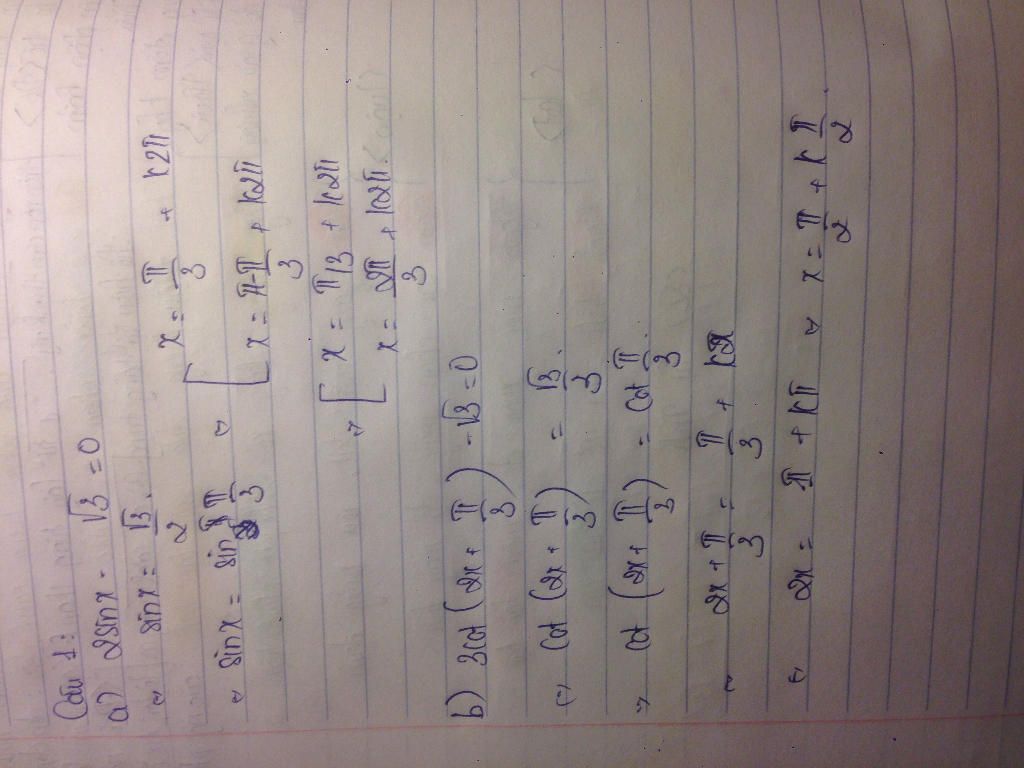 Câu 1:
a) 2sinx - √3 = 0
⇔ sinx = √3/2.
⇔ sinx = sin π/3 ⇔ [ x = π/3 + k2π
x = π-π/3 + k2π
⇔ [ x = π/3 + k2π
x = 2π/3 + k2π.
b) 3cot(2x + π/3) - √3 = 0
⇔ cot(2x + π/3) = √3/3.
⇔ cot(2x + π/3) = cot π/3
⇔ 2x + π/3 = π/3 + k2π
⇔ 2x = π + kπ ⇔ x = π/2 + k π/2.